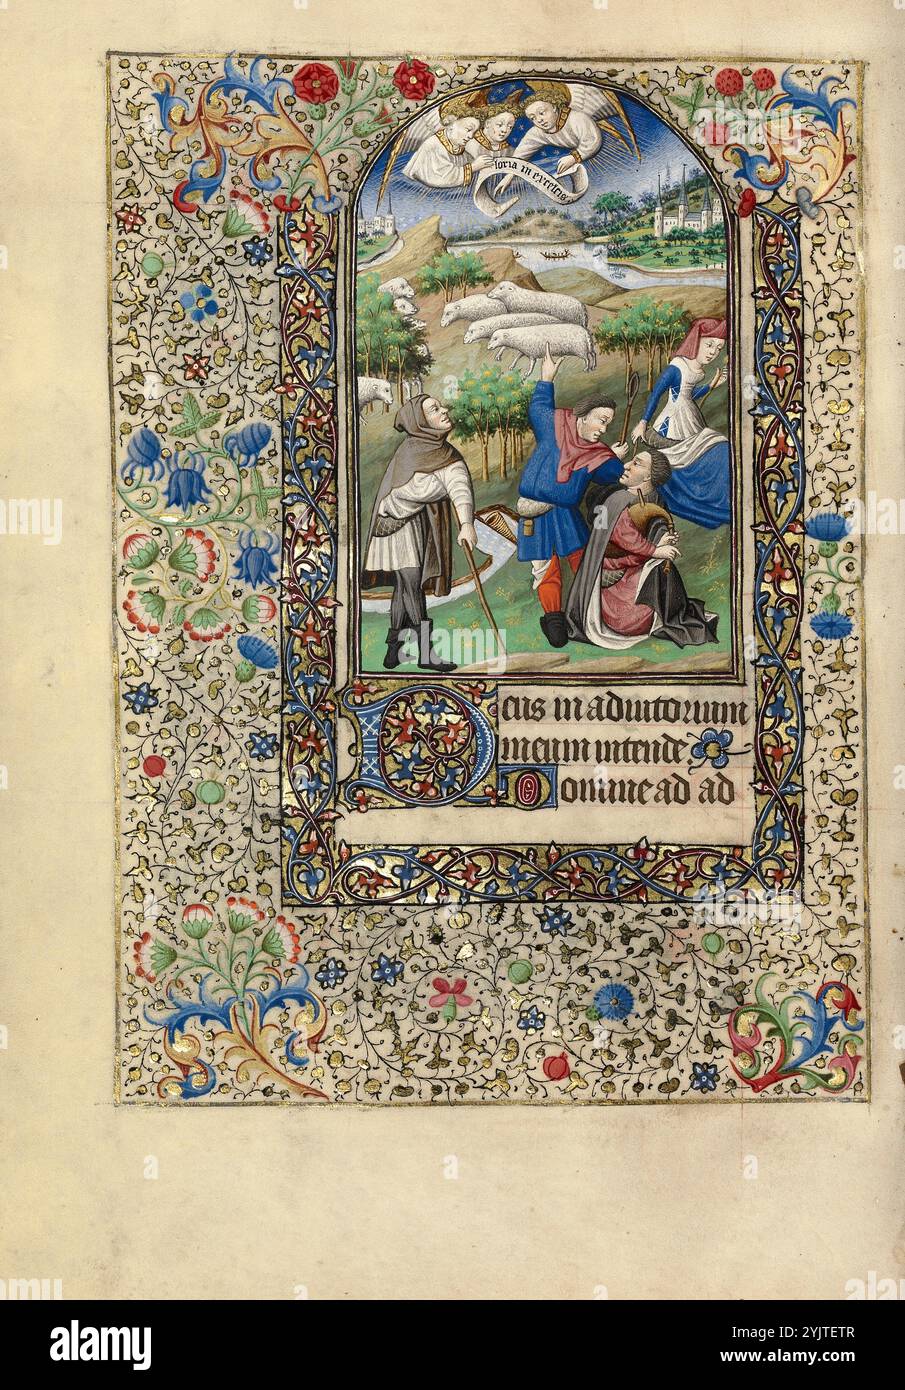 loria in excelsis
Deus in adiutorium
meum intende
Domine ad ad
a
alamy
Image ID: 2YJTETR
www.alamy.com